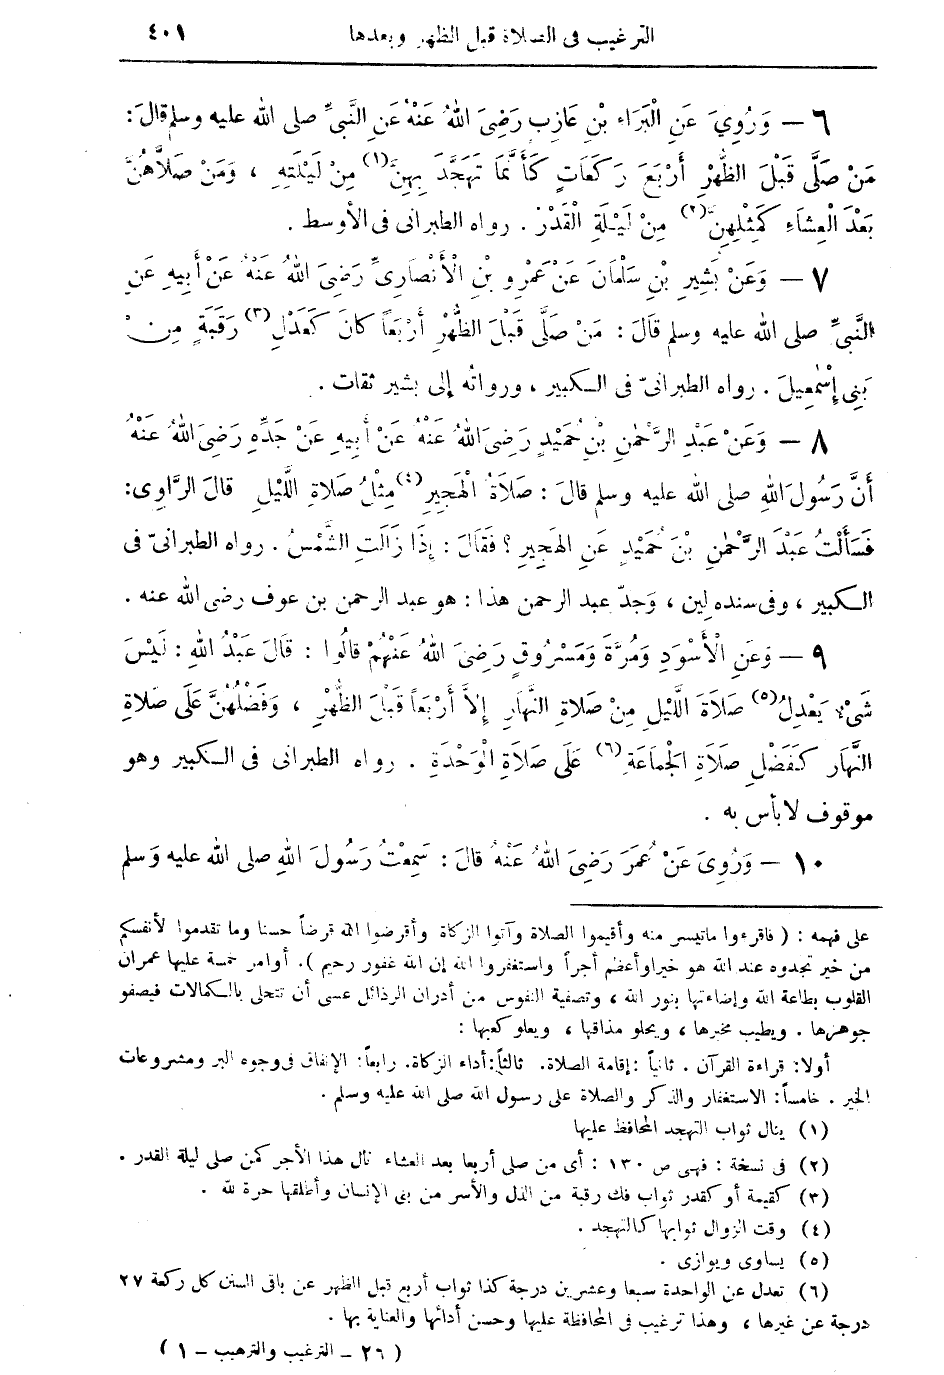 الترغيب فى الصلاة قبل الظهر وبعدها ٤٠١
٦ — وَرُوِيَ عَنِ الْبَرَاءِ بْنِ عَازِبٍ رَضِيَ اللهُ عَنْهُ عَنِ النَّبِيِّ صلى الله عليه وسلم قالَ:
مَنْ صَلَّى قَبْلَ الظُّهْرِ أَرْبَعَ رَكَعَاتٍ كَأَنَّمَا تَهَجَّدَ بِهِنَّ(١) مِنْ لَيْلَتِهِ ، وَمَنْ صَلَّاهُنَّ
بَعْدَ الْعِشَاءِ كَمِثْلِهِنَّ(٢) مِنْ لَيْلَةِ الْقَدْرِ . رواه الطبرانى فى الأوسط .
٧ — وَعَنْ بَشِيرِ بْنِ سَلْمَانَ عَنْ عَمْرِو بْنِ الْأَنْصَارِيِّ رَضِيَ اللهُ عَنْهُ عَنْ أَبِيهِ عَنِ
النَّبِيِّ صلى الله عليه وسلم قَالَ : مَنْ صَلَّى قَبْلَ الظُّهْرِ أَرْبَعًا كَانَ كَعَدْلِ(٣) رَقَبَةٍ مِنْ
بَنِي إِسْمٰعِيلَ . رواه الطبرانىّ فى الكبير ، ورواتُه إلى بشير ثقات .
٨ — وَعَنْ عَبْدِ الرَّحْمٰنِ بْنِ حُمَيْدٍ رَضِيَ اللهُ عَنْهُ عَنْ أَبِيهِ عَنْ جَدِّهِ رَضِيَ اللهُ عَنْهُ
أَنَّ رَسُولَ اللهِ صلى الله عليه وسلم قالَ : صَلَاةُ الْهَجِيرِ(٤) مِثْلُ صَلَاةِ اللَّيْلِ قالَ الرَّاوِى:
فَسَأَلْتُ عَبْدَ الرَّحْمٰنِ بْنَ حُمَيْدٍ عَنِ الهَجِيرِ ؟ فَقَالَ : إِذَا زَالَتِ الشَّمْسُ . رواه الطبرانىّ فى
الكبير ، وفى سنده لين ، وَجدّ عبد الرحمن هذا : هو عبد الرحمن بن عوف رضى الله عنه .
٩ — وَعَنِ الْأَسْوَدِ وَمُرَّةَ وَمَسْرُوقٍ رَضِيَ اللهُ عَنْهُمْ قالُوا : قَالَ عَبْدُ اللهِ : لَيْسَ
شَيْءٌ يَعْدِلُ(٥) صَلَاةَ اللَّيْلِ مِنْ صَلَاةِ النَّهَارِ إِلَّا أَرْبَعاً قَبْلَ الظُّهْرِ ، وَفَضْلُهُنَّ عَلَى صَلَاةِ
النَّهَارِ كَفَضْلِ صَلَاةِ الْجَمَاعَةِ(٦) عَلَى صَلَاةِ الْوَحْدَةِ . رواه الطبرانى فى الكبير وهو
موقوف لا بأس به .
١٠ — وَرُوِىَ عَنْ عُمَرَ رَضِيَ اللهُ عَنْهُ قالَ : سَمِعْتُ رَسُولَ اللهِ صلى الله عليه وَسلم
على فهمه : ( فاقرءوا ماتيسر منه وأقيموا الصلاة وآتوا الزكاة وأقرضوا الله قرضاً حسنا وما تقدموا لأنفسكم
من خير تجدوه عند الله هو خيرا وأعظم أجراً واستغفروا الله إن الله غفور رحيم ). أوامر خمسة عليها عمران
القلوب بطاعة الله وإضاءتها بنور الله ، وتصفية النفوس من أدران الرذائل عسى أن تتحلى بالكمالات فيصفو
جوهرها . ويطيب مخبرها ، ويحلو مذاقها ، ويعلو كعبها :
أولا: قراءة القرآن . ثانياً :إقامة الصلاة. ثالثاً:أداء الزكاة. رابعاً: الإنفاق فى وجوه البر ومشروعات
الخير . خامساً: الاستغفار والذكر والصلاة على رسول الله صلى الله عليه وسلم .
(١) ينال ثواب التهجد المحافظ عليها
(٢) فى نسخة : فهى ص ١٣٠ : أى من صلى أربعا بعد العشاء نال هذا الأجر كمن صلى ليلة القدر .
(٣) كقيمة أو كقدر ثواب فك رقبة من الذل والأسر من بنى الإنسان وأطلقها حرة لله .
(٤) وقت الزوال ثوابها كالتهجد .
(٥) يساوى ويوازى .
(٦) تعدل عن الواحدة سبعا وعشرين درجة كذا ثواب أربع قبل الظهر عن باقى السنن كل ركعة ٢٧
درجة عن غيرها ، وهذا ترغيب فى المحافظة عليها وحسن أدائها والعناية بها .
( ٢٦ — الترغيب والترهيب — ١ )